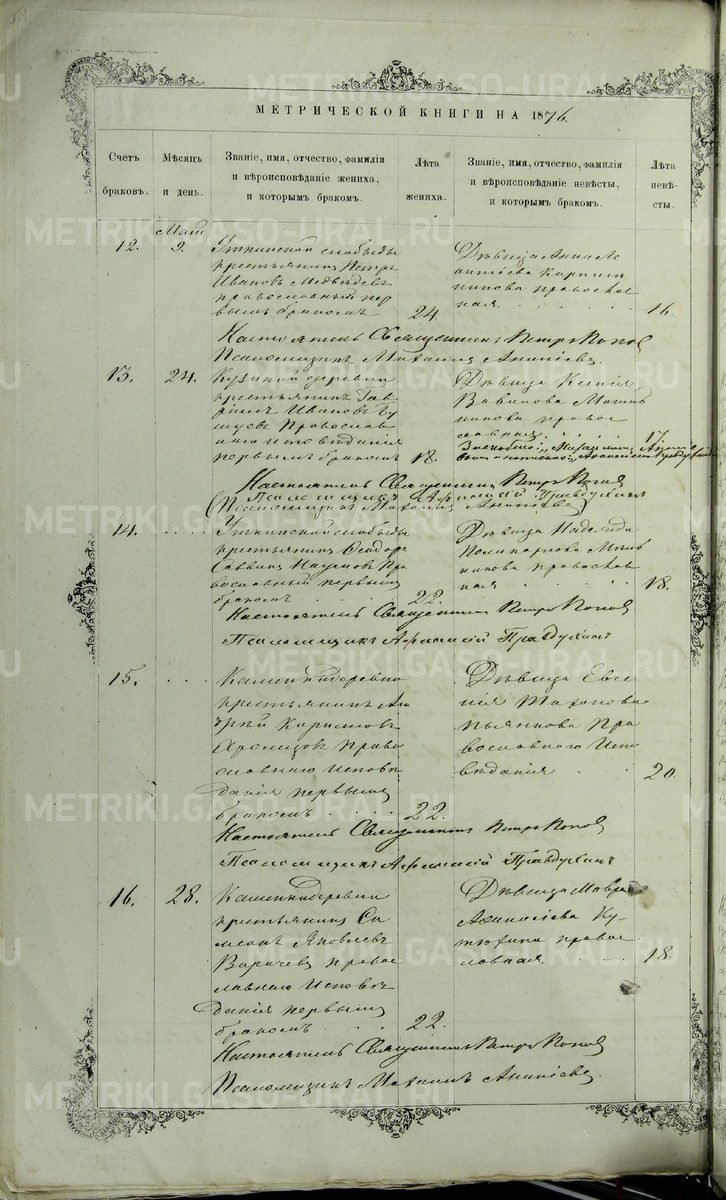 МЕТРИЧЕСКОЙ КНИГИ НА 1876.
Счетъ
браковъ.
Мѣсяцъ
и день.
Званіе, имя, отчество, фамилія
и вѣроисповѣданіе жениха,
и которымъ бракомъ.
Лѣта
жениха.
Званіе, имя, отчество, фамилія
и вѣроисповѣданіе невѣсты,
и которымъ бракомъ.
Лѣта
невѣ-
сты.
Май
12.
9.
Уткинской слободы
крестьянинъ Петръ
Ивановъ Медвѣдевъ
православный пер
вымъ бракомъ
24.
Дѣвица Анна Ле
онтіева
православ
ная
16.
Настоятель Священникъ Петръ Поповъ
Псаломщикъ Михаилъ Ананіевъ.
13.
24.
деревни
крестьянинъ Гав
ріилъ Ивановъ
Православ
наго исповѣданія
первымъ бракомъ
18.
Дѣвица Ксенія
Вавилова
правос
лавная
17.
Настоятель Священникъ Петръ Поповъ
Псаломщикъ Афанасій Правдухинъ
(Псаломщикъ Михаилъ Ананіевъ)
14.
Уткинской слободы
крестьянинъ Ѳеодоръ
Саввинъ Наумовъ Пра
вославный первымъ
бракомъ
22.
Дѣвица Надежда
Поликарпова
православ
ная
18.
Настоятель Священникъ Петръ Поповъ
Псаломщикъ Афанасій Правдухинъ
15.
Каменки деревни
крестьянинъ Ан
дрей Кириловъ
Хромцовъ Право
славнаго Исповѣ
данія первымъ
бракомъ
22.
Дѣвица Евге
нія
Пьянкова Пра
вославнаго Испо
вѣданія
20.
Настоятель Священникъ Петръ Поповъ
Псаломщикъ Афанасій Правдухинъ
16.
28.
Каменки деревни
крестьянинъ Си
меонъ Яковлевъ
правос
лавнаго Исповѣ
данія первымъ
бракомъ
22.
Дѣвица Мавра
Афанасіева Ку-
тюхина правос
лавная
18.
Настоятель Священникъ Петръ Поповъ
Псаломщикъ Михаилъ Ананіевъ.
METRIKI.GASO-URAL.RU